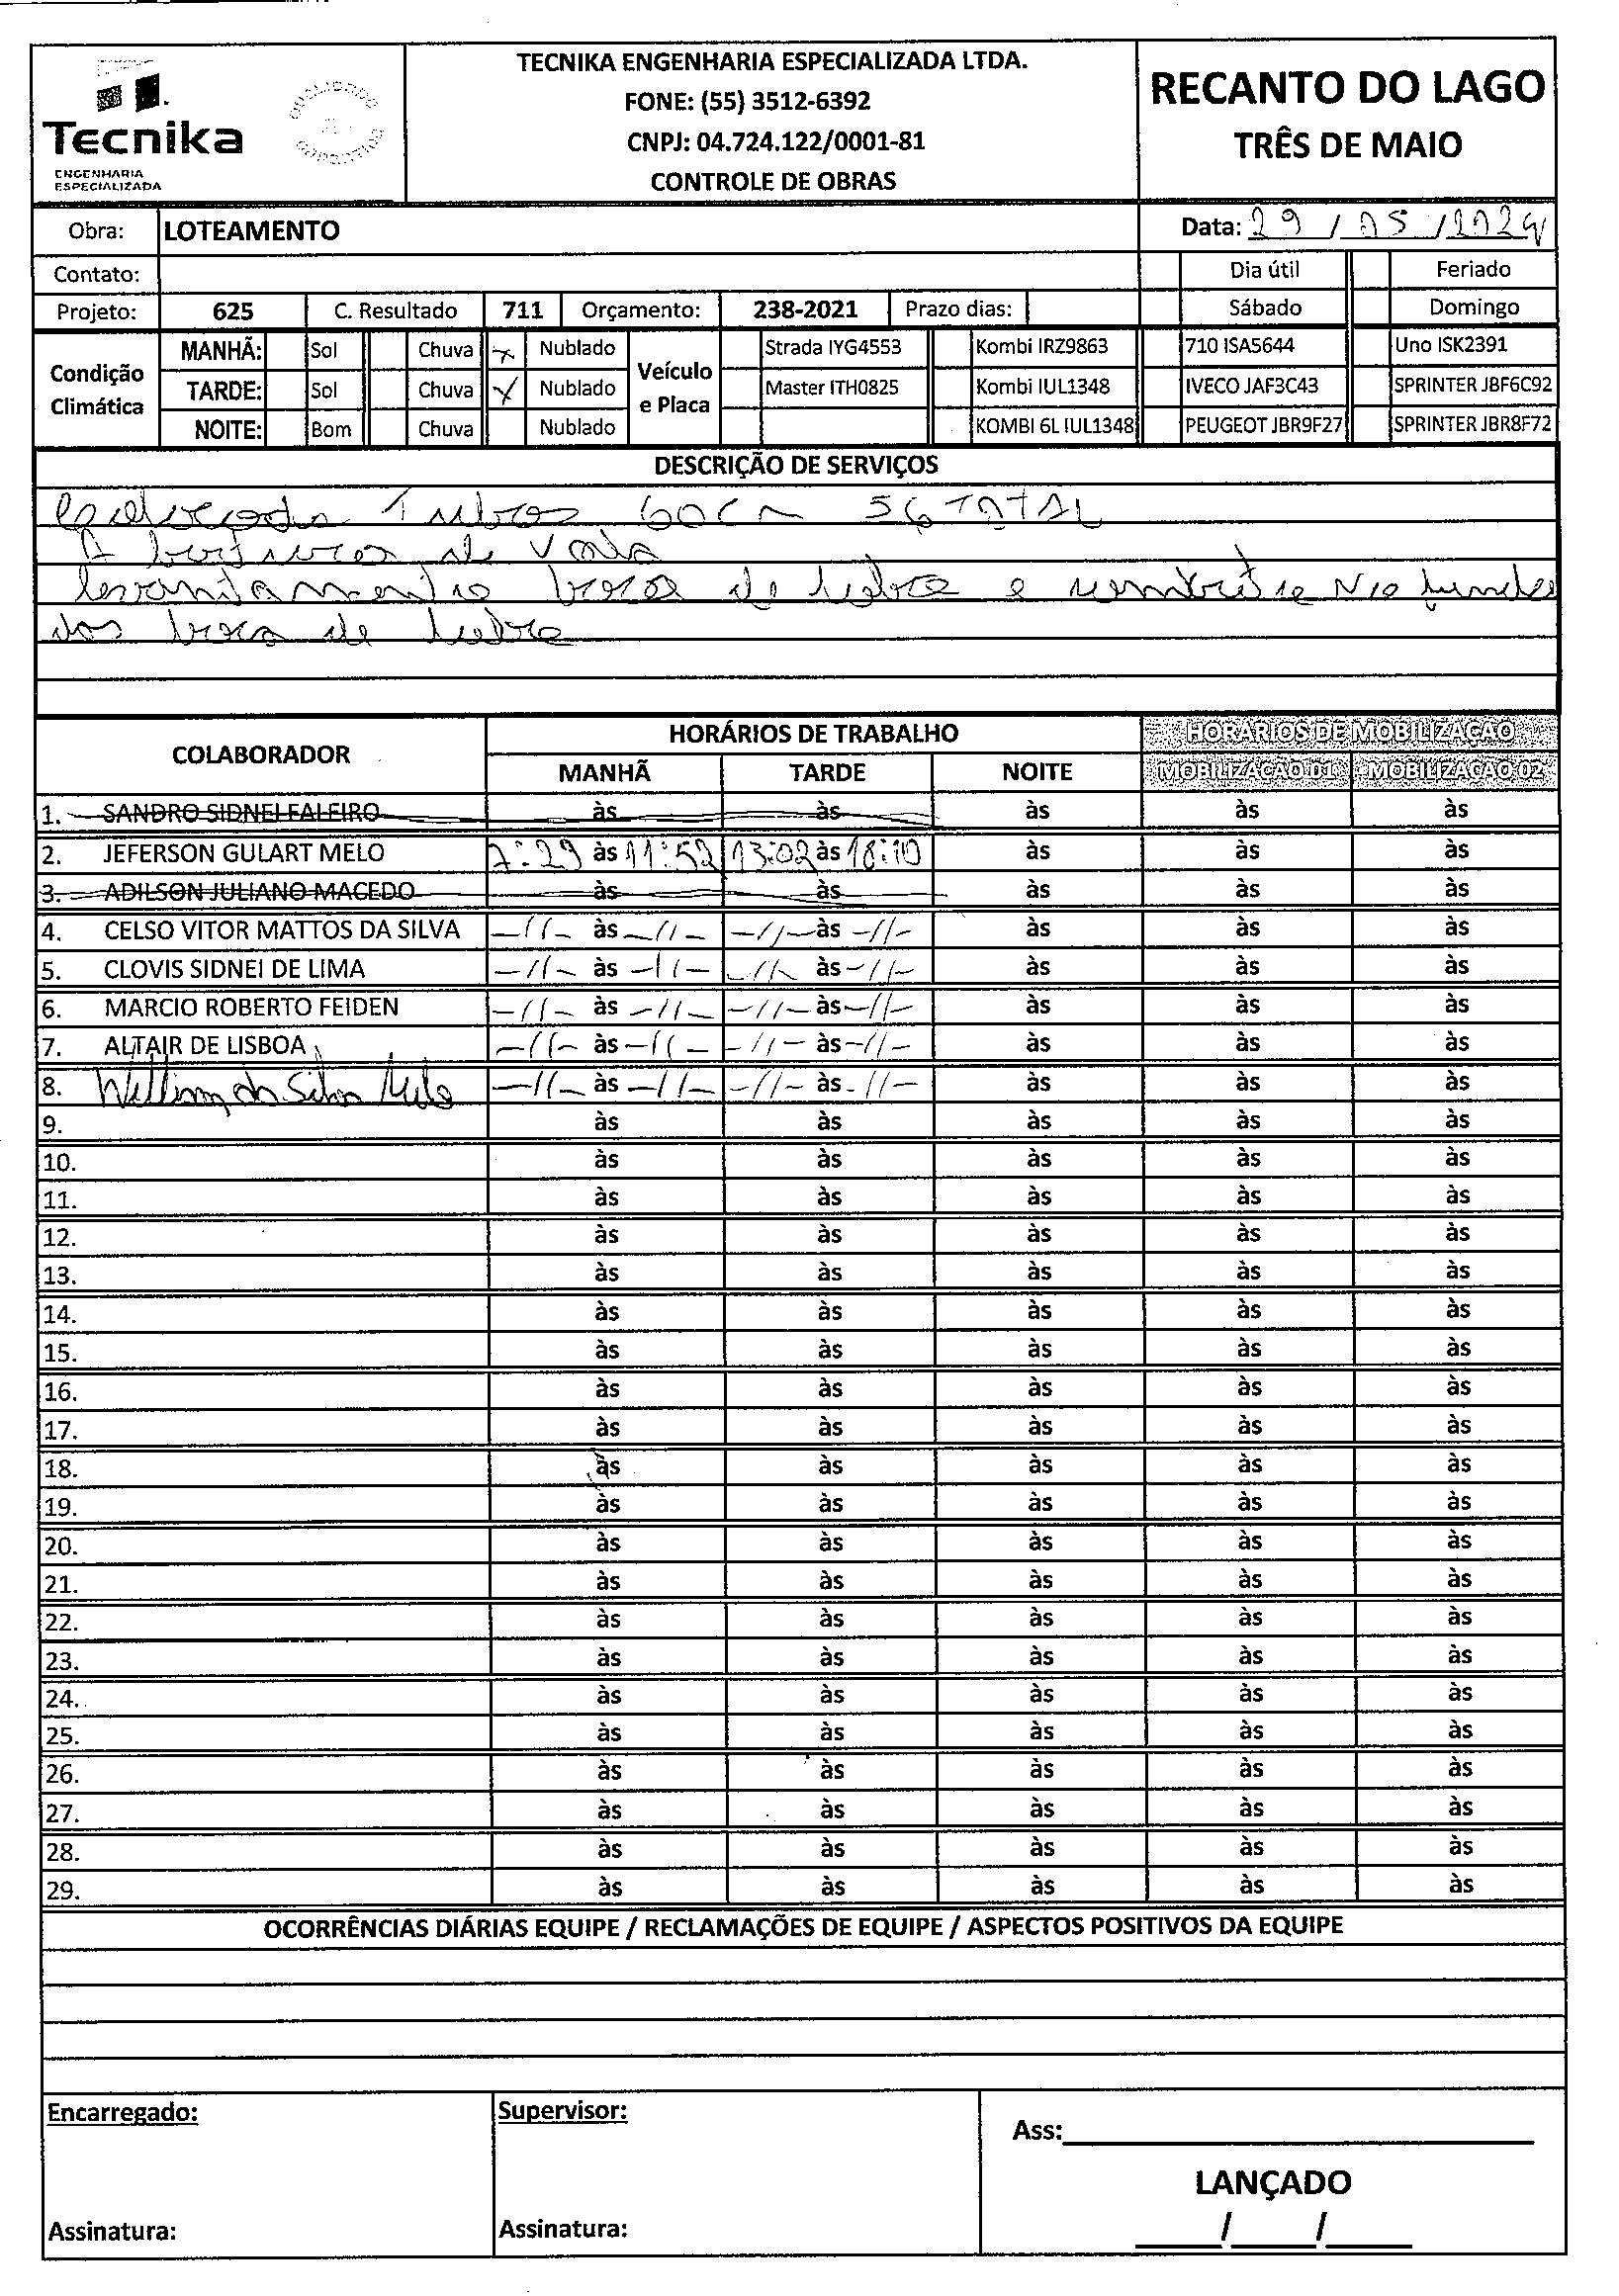 Tecnika
ENGENHARIA
ESPECIALIZADA
TECNIKA ENGENHARIA ESPECIALIZADA LTDA.
FONE: (55) 3512-6392
CNPJ: 04.724.122/0001-81
CONTROLE DE OBRAS
RECANTO DO LAGO
TRÊS DE MAIO
Obra: LOTEAMENTO Data: 29/05/2024
Contato: Dia útil Feriado
Projeto: 625 C. Resultado 711 Orçamento: 238-2021 Prazo dias: Sábado Domingo
Condição Climática
MANHÃ: Sol Chuva X Nublado
TARDE: Sol Chuva X Nublado
NOITE: Bom Chuva Nublado
Veículo e Placa
Strada IYG4553 Kombi IRZ9863 710 ISA5644 Uno ISK2391
Master ITH0825 Kombi IUL1348 IVECO JAF3C43 SPRINTER JBF6C92
KOMBI 6L IUL1348 PEUGEOT JBR9F27 SPRINTER JBR8F72
DESCRIÇÃO DE SERVIÇOS
Tubos 60 56 TOTAL
de Vala
bocas de lobo e
dos boca de lobo
COLABORADOR HORÁRIOS DE TRABALHO HORÁRIOS DE MOBILIZAÇÃO
MANHÃ TARDE NOITE MOBILIZAÇÃO 01 MOBILIZAÇÃO 02
1. SANDRO SIDNEI FALEIRO às às às às às
2. JEFERSON GULART MELO 7:29 às 11:52 13:02 às 18:10 às às às
3. ADILSON JULIANO MACEDO às às às às às
4. CELSO VITOR MATTOS DA SILVA -//- às -//- -//- às -//- às às às
5. CLOVIS SIDNEI DE LIMA -//- às -//- -//- às -//- às às às
6. MARCIO ROBERTO FEIDEN -//- às -//- -//- às -//- às às às
7. ALTAIR DE LISBOA -//- às -//- -//- às -//- às às às
8. Willian da Silva Melo -//- às -//- -//- às -//- às às às
9. às às às às às
10. às às às às às
11. às às às às às
12. às às às às às
13. às às às às às
14. às às às às às
15. às às às às às
16. às às às às às
17. às às às às às
18. às às às às às
19. às às às às às
20. às às às às às
21. às às às às às
22. às às às às às
23. às às às às às
24. às às às às às
25. às às às às às
26. às às às às às
27. às às às às às
28. às às às às às
29. às às às às às
OCORRÊNCIAS DIÁRIAS EQUIPE / RECLAMAÇÕES DE EQUIPE / ASPECTOS POSITIVOS DA EQUIPE
Encarregado: Supervisor: Ass:
LANÇADO
Assinatura: Assinatura: / /